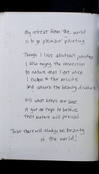 My retreat from the world
is to go outdoor painting
Though I love abstract painting
I also enjoy the connection
to nature that I get when
I listen to the
and absorb the beauty of nature
It's what keeps me sane
It gives me hope to believe
that nature will prevail
That there will always be beauty
of the world.